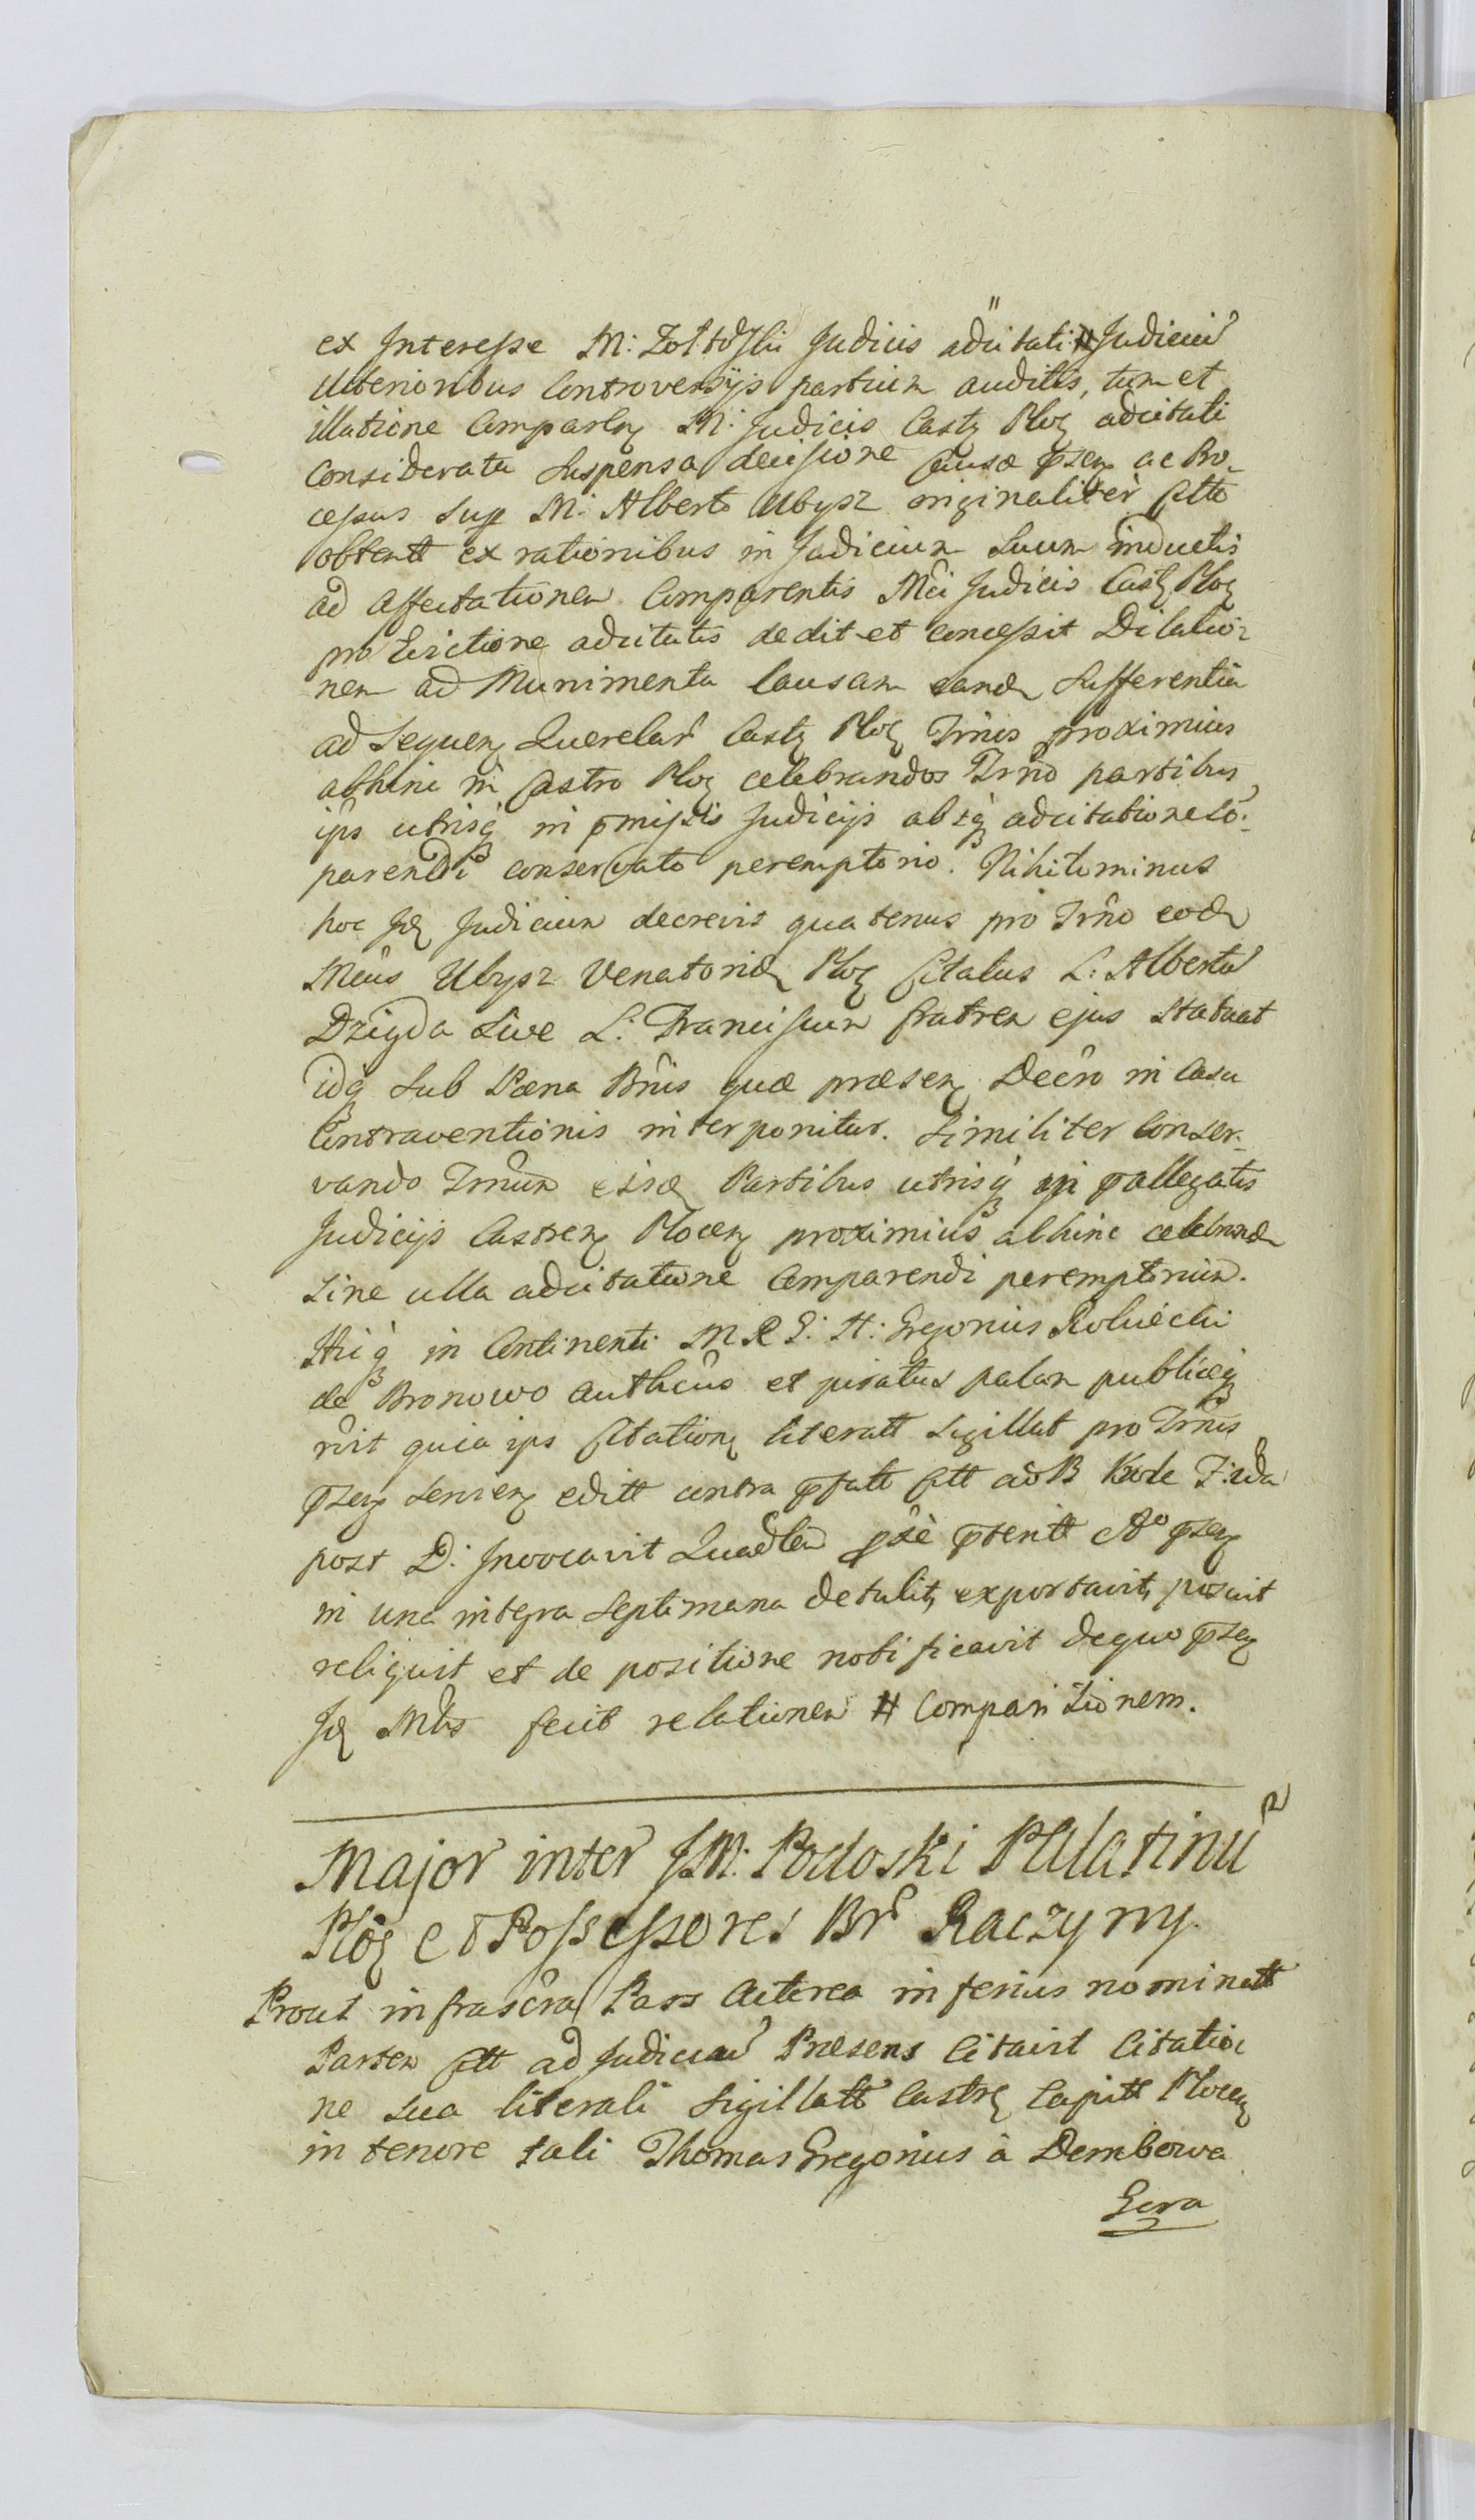 ex Interesse M: Judicis adcitati # Judiciu
Ulterioribus Controversijs partium auditis, tum et
illatione Comparen M: Judicis Castr Ploc adcitati
Considerata Suspensa decisione Causæ psen ac Pro-
cessus Sup M: Alberto Ubysz originaliter Citto
obtentt ex rationibus in Judicium Suum inductis
ad affectationem Comparentis Mci Judicis Castr Ploc
pro Evictione adcitatis dedit et concessit Dilatio=
nem ad Munimenta Causam eand Sufferentia
ad Sequen Querelar Castr Ploc Trnis proximius
abhinc in Castro Ploc celebrandos Trno partibus
ips utrisq in pmissis Judicijs absq adcitatione co-
parendi conservato peremptorio. Nihilominus
hoc Id Judicium decrevit quatenus pro Trno eod
Mcus Ubysz Venatorid Ploc Citatus L: Albertu
Dzigda Sive L: Franciscum fratrem ejus Statuat
idq Sub Pæna Bnis quæ præsen Decro in Casu
Contraventionis interponitur. Similiter Conser-
vando Trnum eisd Partibus utrisq in pallegatis
Judicijs Castren Plocen proximius abhinc celebrand
Sine ulla adcitatione Comparendi peremptorium.
Hicq in Continenti M R G: H: Gregorius
de Bronowo authcus et juratus palam publiceq
rvit quia ips Citation literatt Sigillat pro Trnis
psen Servien editt contra pfatt Citt ad B
post D: Invocavit ptentt Ao psen
in una integra Septimana detulit, exportavit, posuit
reliquit et de positione notificavit dequo psen
Id Mtris fecit relationem # Comparitionem.
Major inter JM: Podoski Palatinu
Ploc et Possessores Br Raczyny.
Prout infrascra Pars Actorea inferius nominatt
Partem Citt ad Judiciu Præsens Citavit Citatio=
ne Sua literali Sigillatt Castr Capitt Plocen
in tenore tali Thomas Gregorius à Dembowa
Gora